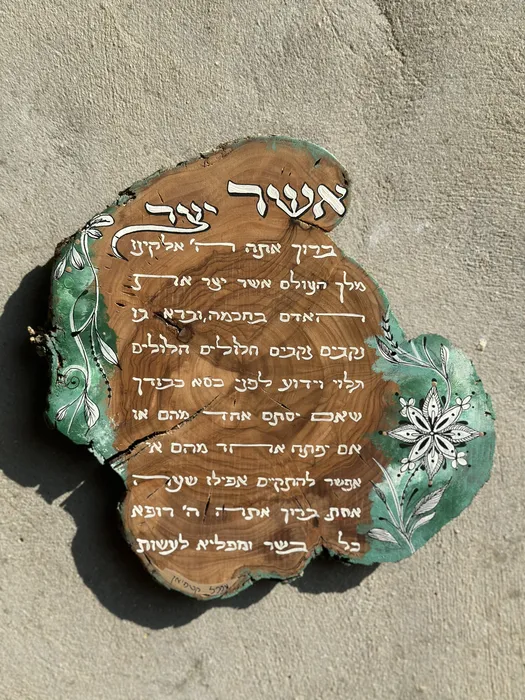 אשר יצר
ברוך אתה ה' אלקינו
מלך העולם אשר יצר את
האדם בחכמה,וברא בו
נקבים נקבים חלולים חלולים
גלוי וידוע לפני כסא כבודך
שאם יסתם אחד מהם או
אם יפתח אחד מהם אי
אפשר להתקים אפילו שעה
אחת ברוך אתה ה' רופא
כל בשר ומפליא לעשות